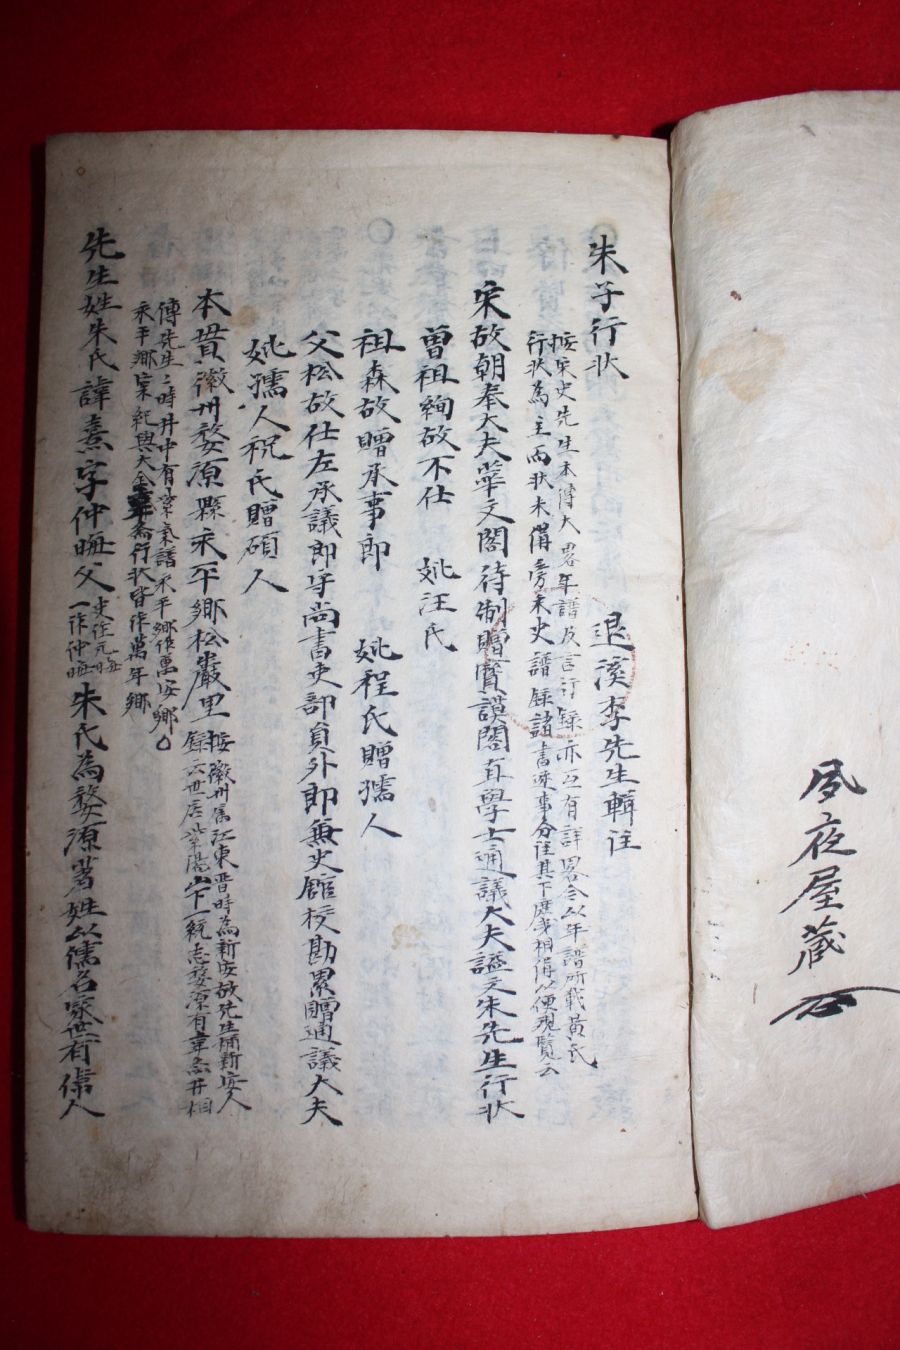 夙夜屋藏
朱子行狀
退溪李先生輯註
按宋史先生本傳大畧年譜及言行錄亦互有詳畧今以年譜所載黃氏
行狀為主而狀未備旁采史譜錄諸書逐事分註其下庶或相備以便觀覽云
宋故朝奉大夫華文閣待制贈寶謨閣直學士通議大夫謚文朱先生行狀
曾祖絢故不仕 妣汪氏
祖森故贈承事郎 妣程氏贈孺人
父松故仕左承議郎守尚書吏部員外郎兼史館校勘累贈通議大夫
妣孺人祝氏贈碩人
本貫徽州婺源縣永平鄉松巖里
按徽州屬江東晋時為新安故先生稱新安人
錄云世居紫陽山下一統志婺源有韋齋井相
傳先生之時井中有紫氣譜永平鄉作萬安鄉
永平鄉實紀與大全韋齋行狀皆作萬年鄉
先生姓朱氏諱熹字仲晦父
史作元晦
一作仲晦
朱氏為婺源著姓以儒名家世有偉人